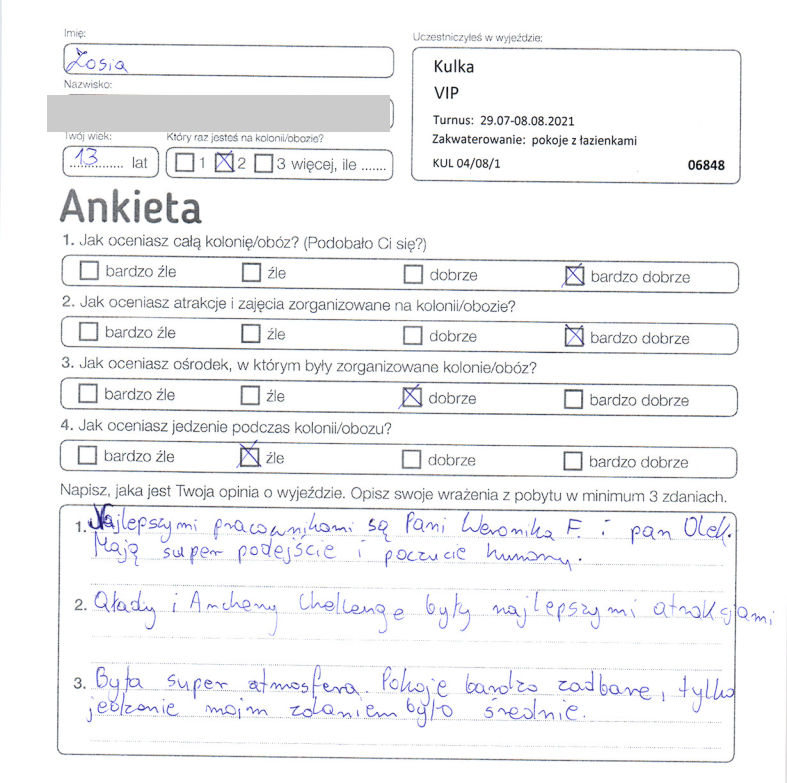 Imię:
Zosia
Nazwisko:
Twój wiek:
13 lat
Który raz jesteś na kolonii/obozie?
1 2 3 więcej, ile .......
Uczestniczyłeś w wyjeździe:
Kulka
VIP
Turnus: 29.07-08.08.2021
Zakwaterowanie: pokoje z łazienkami
KUL 04/08/1 06848
Ankieta
1. Jak oceniasz całą kolonię/obóz? (Podobało Ci się?)
bardzo źle źle dobrze bardzo dobrze
2. Jak oceniasz atrakcje i zajęcia zorganizowane na kolonii/obozie?
bardzo źle źle dobrze bardzo dobrze
3. Jak oceniasz ośrodek, w którym były zorganizowane kolonie/obóz?
bardzo źle źle dobrze bardzo dobrze
4. Jak oceniasz jedzenie podczas kolonii/obozu?
bardzo źle źle dobrze bardzo dobrze
Napisz, jaka jest Twoja opinia o wyjeździe. Opisz swoje wrażenia z pobytu w minimum 3 zdaniach.
1. Najlepszymi pracownikami są Pani Weronika F. i pan Olek.
Mają super podejście i poczucie humoru.
2. i Archery Challenge były najlepszymi atrakcjami
3. Była super atmosfera. Pokoje bardzo zadbane, tylko
jedzenie moim zdaniem było średnie.